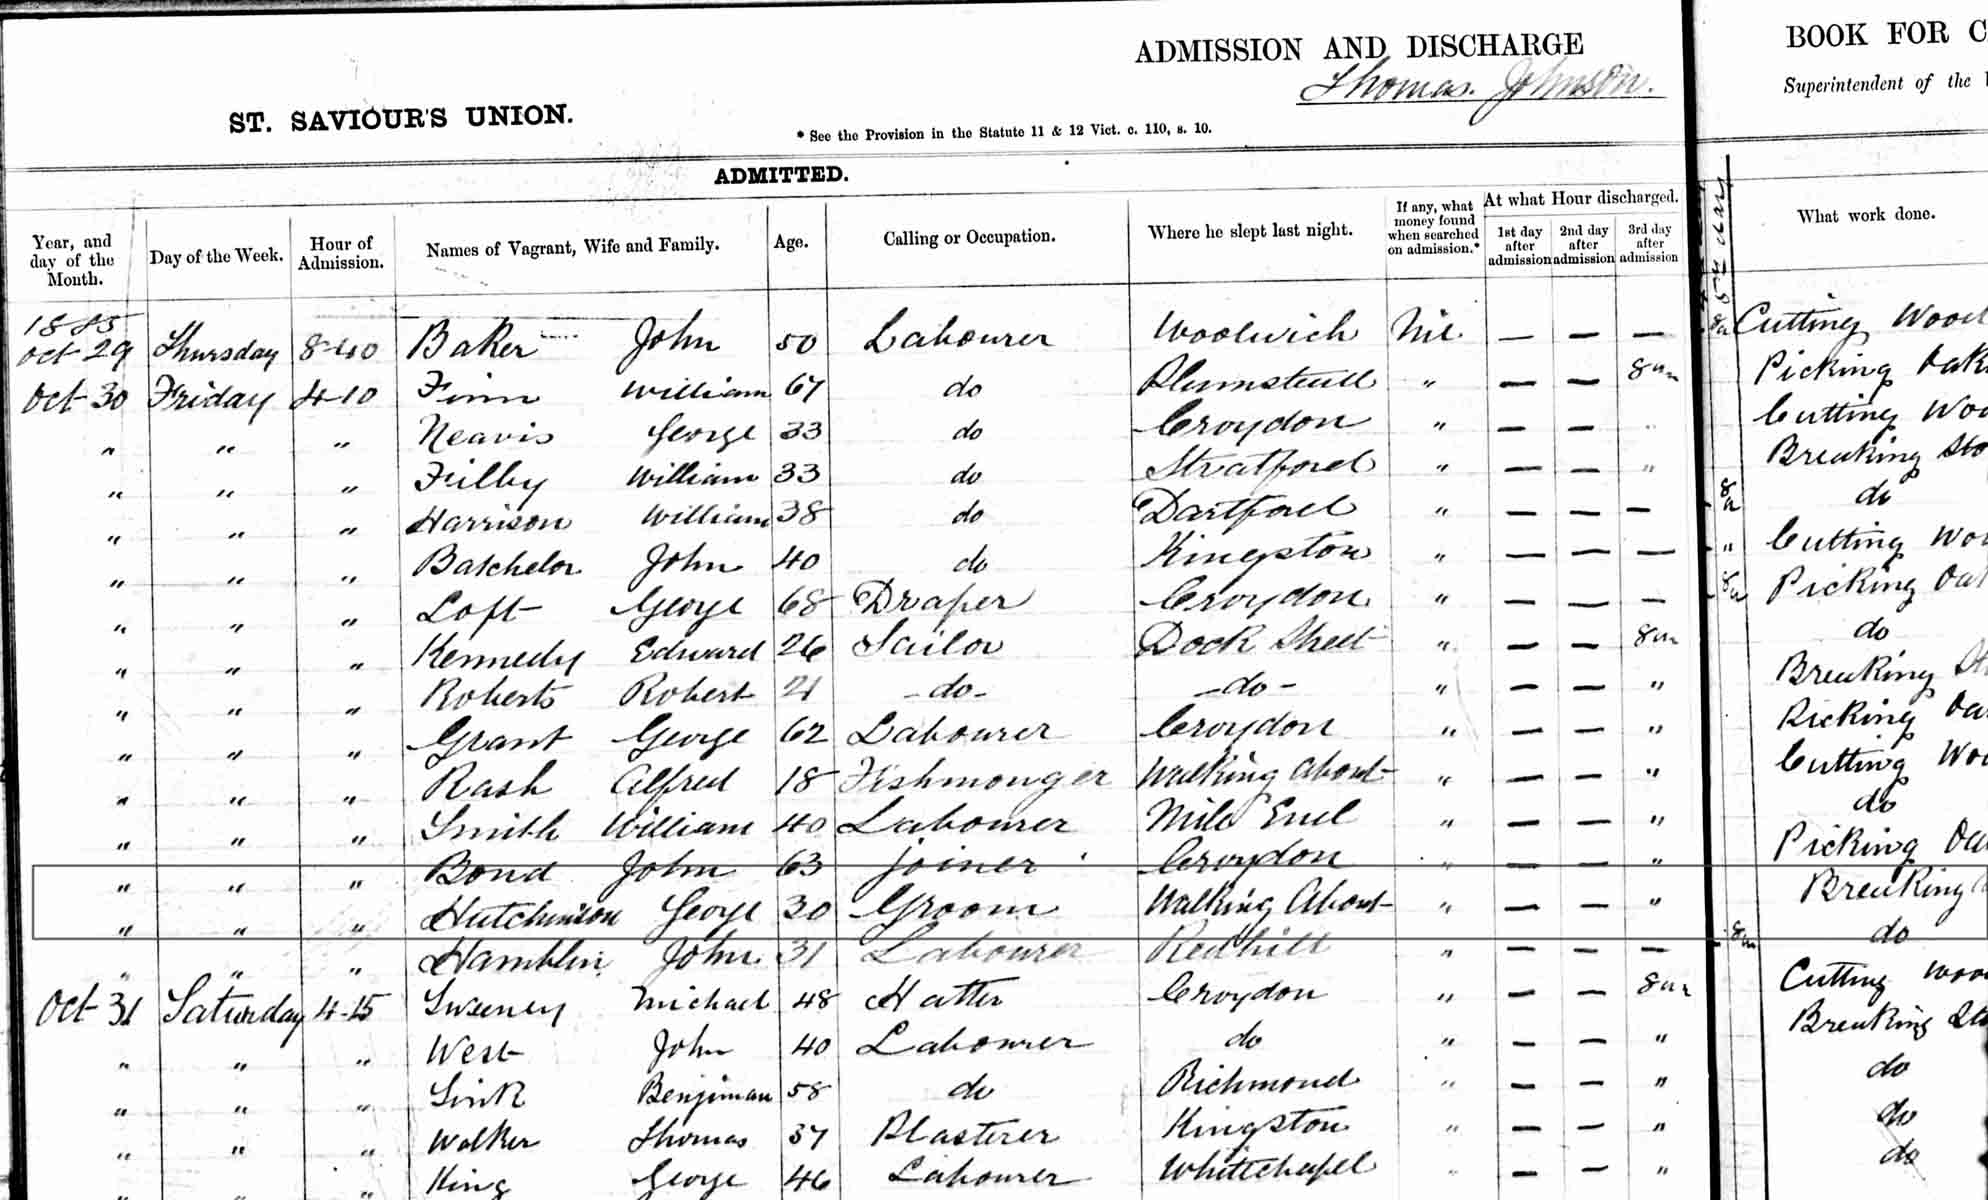 ADMISSION AND DISCHARGE
Thomas. Johnson.
ST. SAVIOUR'S UNION.
* See the Provision in the Statute 11 & 12 Vict. c. 110, s. 10.
ADMITTED.
Year, and day of the Month. Day of the Week. Hour of Admission. Names of Vagrant, Wife and Family. Age. Calling or Occupation. Where he slept last night. If any, what money found when searched on admission.* At what Hour discharged. 1st day after admission 2nd day after admission 3rd day after admission
BOOK FOR C
Superintendent of the
5th day
What work done.
1885
Oct 29 Thursday 8-40 Baker John 50 Labourer Woolwich Nil — — — 8a Cutting Wood
Oct 30 Friday 4-10 Finn William 67 do Plumstead " — — 8am Picking Oak
" " " Neavis George 33 do Croydon " — — " Cutting Woo
" " " Filby William 33 do Stratford " — — " Breaking Sto
" " " Harrison William 38 do Dartford " — — — 8a do
" " " Batchelor John 40 do Kingston " — — — " Cutting Woo
" " " Loft George 68 Draper Croydon " — — — 8a Picking Oak
" " " Kennedy Edward 26 Sailor Dock Street " — — 8am do
" " " Roberts Robert 21 -do- -do- " — — " Breaking St
" " " Grant George 62 Labourer Croydon " — — " Picking Oa
" " " Rash Alfred 18 Fishmonger Walking About " — — " Cutting Wo
" " " Smith William 40 Labourer Mile End " — — " do
" " " Bond John 63 joiner Croydon " — — " Picking Oa
" " " Hutchinson George 30 Groom Walking About " — — " Breaking
" " " Hamblin John 31 Labourer Redhill " — — — 8am do
Oct 31 Saturday 4-15 Sweeney Michael 48 Hatter Croydon " — — 8am Cutting Woo
" " " West John 40 Labourer do " — — " Breaking Sto
" " " Sink Benjiman 58 do Richmond " — — " do
" " " Walker Thomas 37 Plasterer Kingston " — — " do
" " " King George 46 Labourer Whitechapel " — — " do